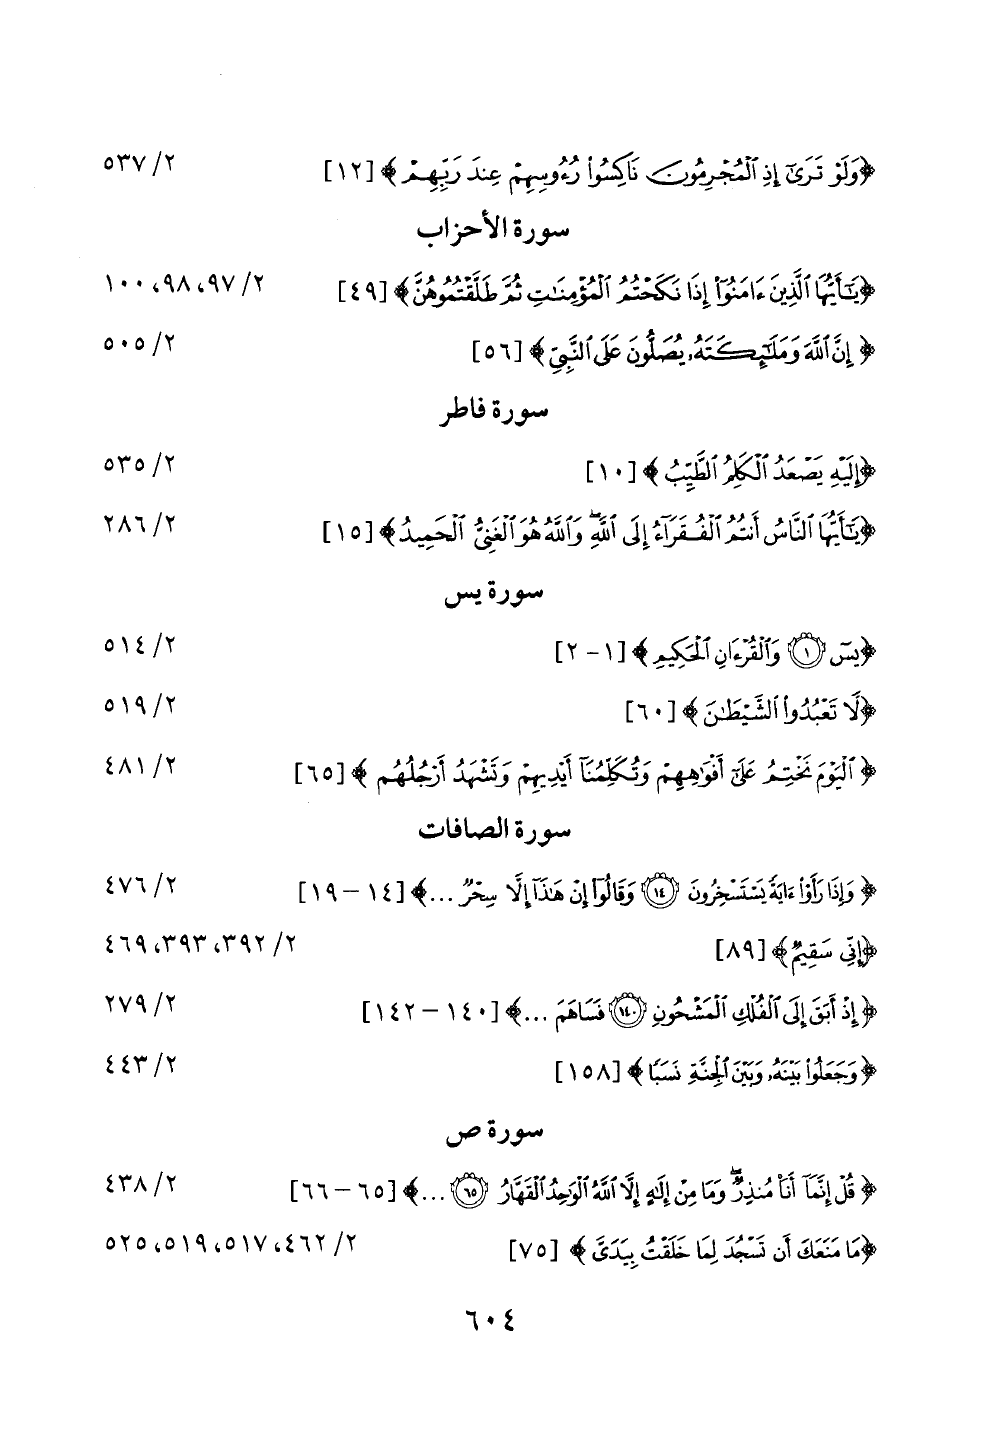 ﴿وَلَوْ تَرَىٰٓ إِذِ ٱلْمُجْرِمُونَ نَاكِسُوا۟ رُءُوسِهِمْ عِندَ رَبِّهِمْ﴾ [١٢] ٢/ ٥٣٧
سورة الأحزاب
﴿يَٰٓأَيُّهَا ٱلَّذِينَ ءَامَنُوٓا۟ إِذَا نَكَحْتُمُ ٱلْمُؤْمِنَٰتِ ثُمَّ طَلَّقْتُمُوهُنَّ﴾ [٤٩] ٢/ ٩٧، ٩٨، ١٠٠
﴿إِنَّ ٱللَّهَ وَمَلَٰٓئِكَتَهُۥ يُصَلُّونَ عَلَى ٱلنَّبِىِّ﴾ [٥٦] ٢/ ٥٠٥
سورة فاطر
﴿إِلَيْهِ يَصْعَدُ ٱلْكَلِمُ ٱلطَّيِّبُ﴾ [١٠] ٢/ ٥٣٥
﴿يَٰٓأَيُّهَا ٱلنَّاسُ أَنتُمُ ٱلْفُقَرَآءُ إِلَى ٱللَّهِ ۖ وَٱللَّهُ هُوَ ٱلْغَنِىُّ ٱلْحَمِيدُ﴾ [١٥] ٢/ ٢٨٦
سورة يس
﴿يسٓ ۝١ وَٱلْقُرْءَانِ ٱلْحَكِيمِ﴾ [١ - ٢] ٢/ ٥١٤
﴿لَّا تَعْبُدُوا۟ ٱلشَّيْطَٰنَ﴾ [٦٠] ٢/ ٥١٩
﴿ٱلْيَوْمَ نَخْتِمُ عَلَىٰٓ أَفْوَٰهِهِمْ وَتُكَلِّمُنَآ أَيْدِيهِمْ وَتَشْهَدُ أَرْجُلُهُم﴾ [٦٥] ٢/ ٤٨١
سورة الصافات
﴿وَإِذَا رَأَوْا۟ ءَايَةً يَسْتَسْخِرُونَ ۝١٤ وَقَالُوٓا۟ إِنْ هَٰذَآ إِلَّا سِحْرٌ ...﴾ [١٤ - ١٩] ٢/ ٤٧٦
﴿إِنِّى سَقِيمٌ﴾ [٨٩] ٢/ ٣٩٢، ٣٩٣، ٤٦٩
﴿إِذْ أَبَقَ إِلَى ٱلْفُلْكِ ٱلْمَشْحُونِ ۝١٤٠ فَسَاهَمَ ...﴾ [١٤٠ - ١٤٢] ٢/ ٢٧٩
﴿وَجَعَلُوا۟ بَيْنَهُۥ وَبَيْنَ ٱلْجِنَّةِ نَسَبًا﴾ [١٥٨] ٢/ ٤٤٣
سورة ص
﴿قُلْ إِنَّمَآ أَنَا۠ مُنذِرٌ ۖ وَمَا مِنْ إِلَٰهٍ إِلَّا ٱللَّهُ ٱلْوَٰحِدُ ٱلْقَهَّارُ ۝٦٥ ...﴾ [٦٥ - ٦٦] ٢/ ٤٣٨
﴿مَا مَنَعَكَ أَن تَسْجُدَ لِمَا خَلَقْتُ بِيَدَىَّ﴾ [٧٥] ٢/ ٤٦٢، ٥١٧، ٥١٩، ٥٢٥
٦٠٤